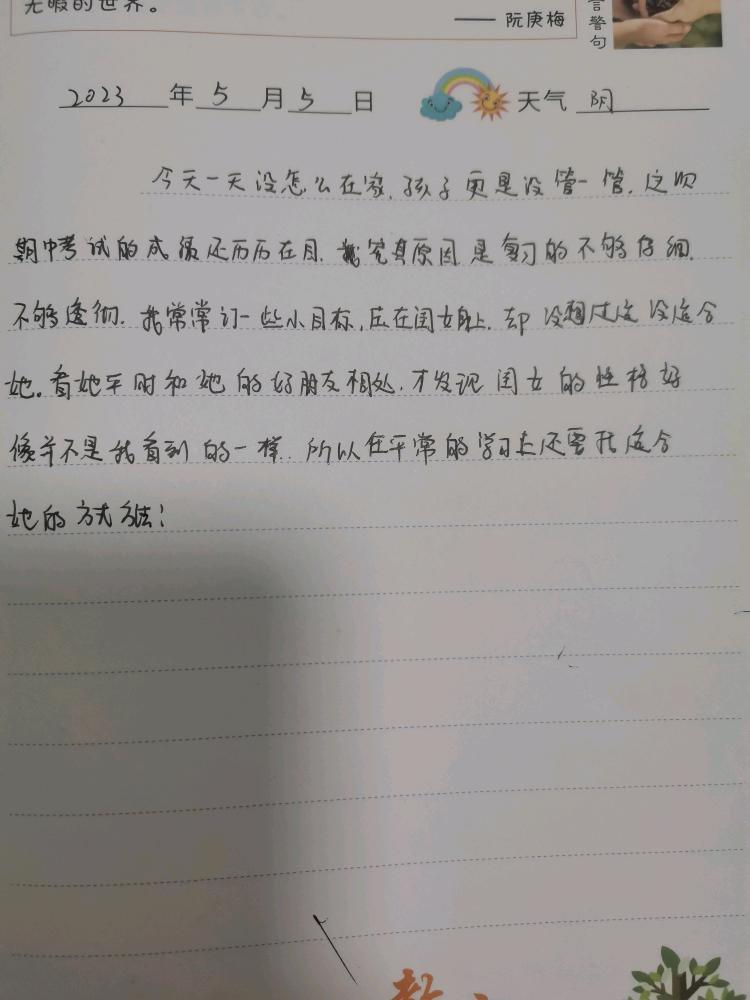 无暇的世界。
—— 阮庚梅
警句
2023 年 5 月 5 日 天气 阴
今天一天没怎么在家,孩子更是没管一管,这次
期中考试的成绩还历历在目,我究其原因是复习的不够仔细,
不够透彻,我常常订一些小目标,压在闺女身上,却没想过适没适合
她。看她平时和她的好朋友相处,才发现闺女的性格好
像并不是我看到的一样,所以在平常的学习上还要找适合
她的方式方法!